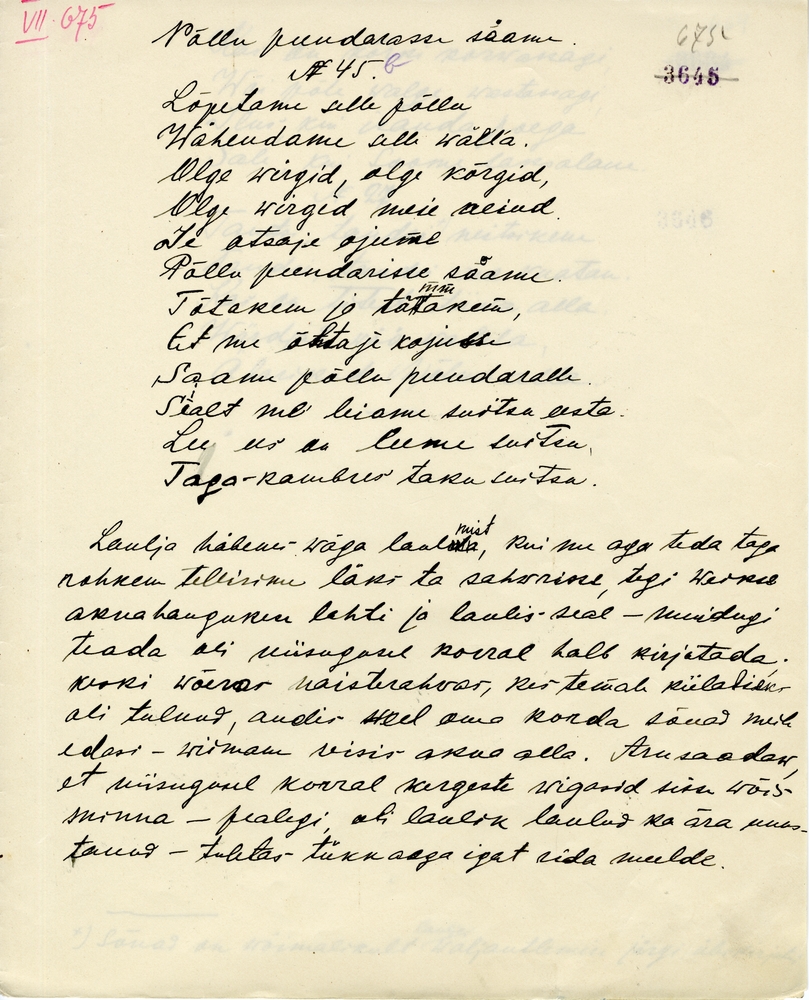 VII 675
Põllu peendarasse sãame.
675.
3646
№ 45. b
Lõpetame selle põllu
Wähendame selle wälla.
Olge wirgid, olge kõrgid,
Olge wirgid meie neiud.
Je otsaje ojume
Põllu peendarisse sãame.
Tõtakem ja tättakem,
mm
Et me õhtaje koju
Saame põllu peendaralle.
Sialt me leiame suitsu usta.
Lee ees on leeme suitsu,
Taga-kambres taku suitsu.
Laulja häbenes wäga laulmist, kui me aga teda taga
rohkem tellisime läks ta sahwrisse, tegi weikse
aknahaugukese lahti ja laulis seal – muidugi
teada oli niisugusel korral halb kirjutada.
keski wõeras naisterahwas, kes temale külaliseks
oli tulnud, andis weel oma korda sõnad meile
edasi – wiimane ’ istus akna alla. Arusaadaw,
et niisugusel korral kergeste wigasid sisse wõis
minna – pealegi, oli laulik laulud ka ära unus-
tanud – tuletas tükk aaga igat rida meelde.